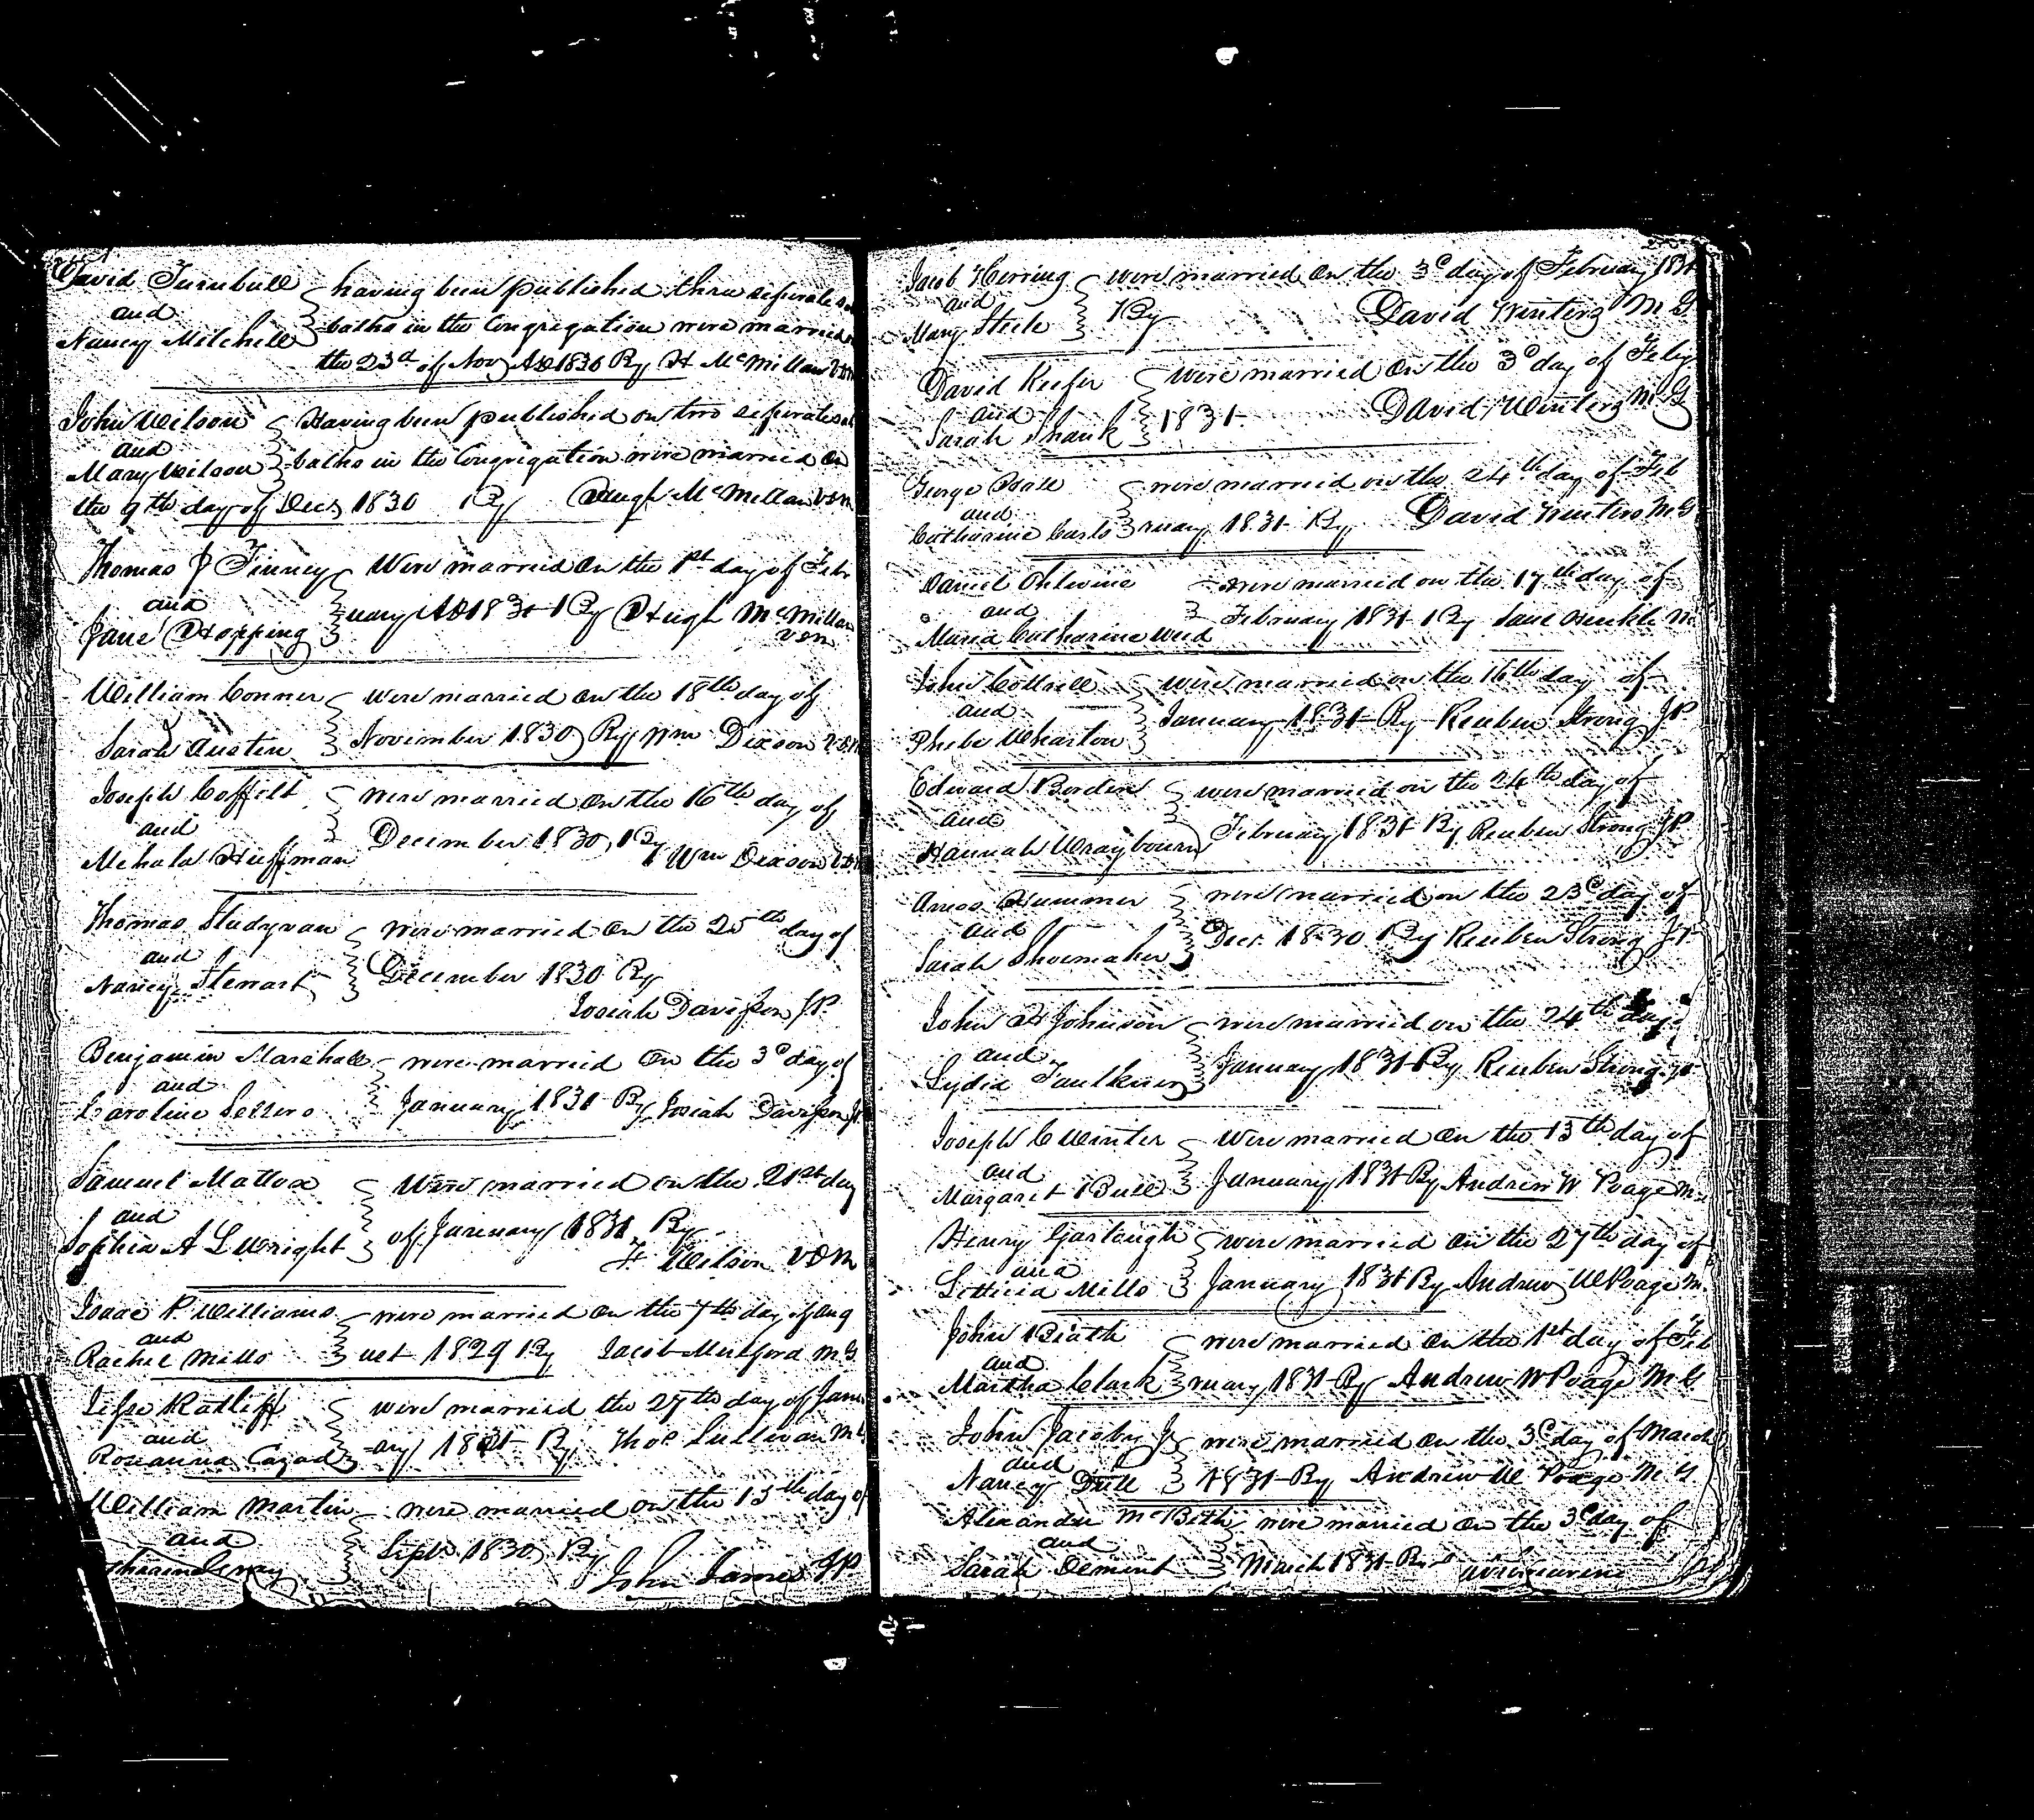 David Turnbull having been published three seperate sab
and
Nancy Mitchell baths in the Congregation were married on
the 23d of Nov AD 1830 By H McMillan VDM
John Wilson Having been published on two seperate sab
and
Mary Wilson baths in the Congregation were married on
the 9th day of Decr 1830 By Hugh McMillan VDM
Thomas J Finney Were married on the 1st day of Feb
and
Jane Hopping ruary AD 1831 By Hugh McMillan
VDM
William Conner were married on the 18th day of
Sarah Austin November 1830 By Wm Dixson VDM
Joseph Coffelt were married on the 16th day of
and
Mehala Huffman December 1830 By
Wm Dixson VDM
Thomas Studyvan were married on the 25th day of
and
Nancy Stewart December 1830 By
Josiah Davisson JP
Benjamin Marshall were married on the 3d day of
and
Caroline Sellers January 1831 By Josiah Davisson JP
Samuel Mattox Were married on the 21st day
and
Sophia A L Wright of January 1831 By
F Wilson VDM
Isaac P. Williams were married on the 7th day of Aug
and
Rachel Mills ust 1829 By Jacob Mulford MG
Jesse Ratliff were married the 27th day of Janu
and
Rosanna Cazad ary 1831 By Thos Sullivan
William Martin were married on the 15th day of
and
Sept 1830 By
John James JP
Jacob Herring were married on the 3d day of February 1831
and
Mary Steele By David Winters MG
David Keefer were married on the 3d day of Feby
and
Sarah Shank 1831 David Winters MG
George Ball were married on the 24th day of Feb
and
Catharine ruary 1831 By David Winters MG
Daniel Ohlwine were married on the 17th day of
and
Maria Catharine Weid February 1831 By Saul Henkle M
John Cottrell were married on the 16th day of
and
Phebe Wharton January 1831 By Reuben Strong JP
Edward Borden were married on the 24th day of
and
Hannah Wraybourn February 1831 By Reuben Strong JP
Amos Hummer were married on the 23d day of
and
Sarah Shoemaker Decr 1830 By Reuben Strong JP
John H Johnson were married on the 24th day of
and
Lydia Faulkner January 1831 By Reuben Strong JP
Joseph C Winter Were married on the 13th day of
and
Margaret Bull January 1831 By Andrew W Poage M
Henry Garlough were married on the 27th day of
and
Letticia Mills January 1831 By Andrew W Poage M
John Beath were married on the 1st day of Feb
and
Martha Clark ruary 1831 By Andrew W Poage MG
John Jacoby Jr were married on the 3d day of March
and
Nancy Drill 1831 By Andrew W Poage M G
Alexander McBeth were married on the 3d day of
and
Sarah Dement March 1831 By